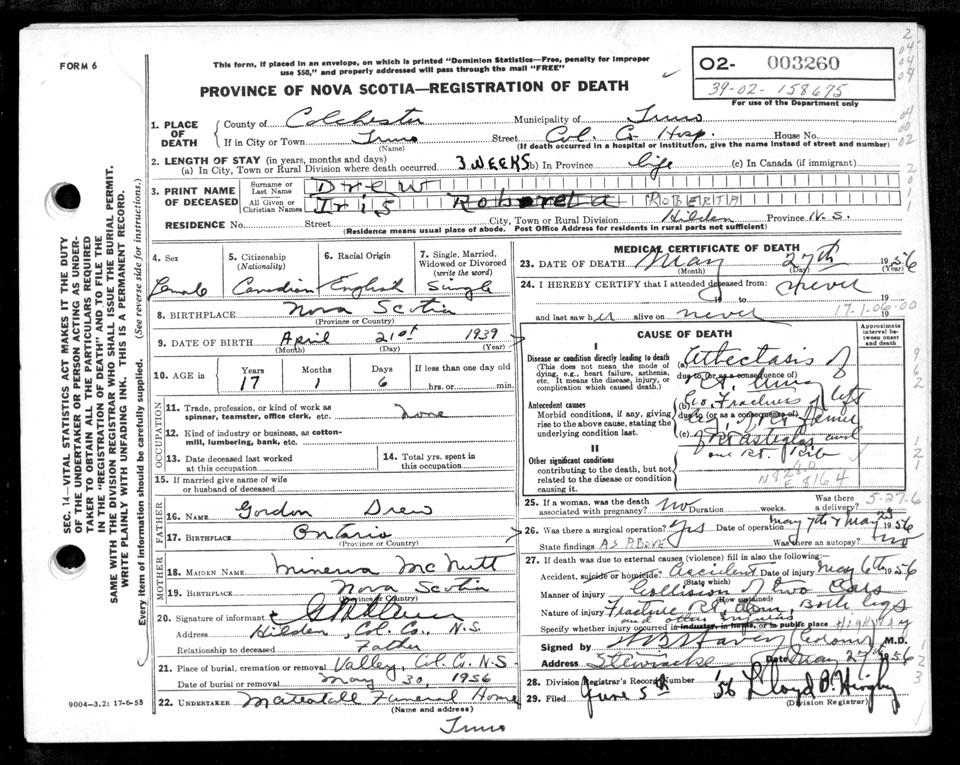 FORM 6
This form, if placed in an envelope, on which is printed "Dominion Statistics—Free, penalty for improper
use $50," and properly addressed will pass through the mail "FREE"
PROVINCE OF NOVA SCOTIA—REGISTRATION OF DEATH
02- 003260
39-02-158675
For use of the Department only
1. PLACE OF DEATH
County of Colchester Municipality of Truro
If in City or Town Truro Street Col. Co. Hosp. House No.
(Name) (If death occurred in a hospital or institution, give the name instead of street and number)
2. LENGTH OF STAY (in years, months and days)
(a) In City, Town or Rural Division where death occurred 3 WEEKS (b) In Province life (c) In Canada (if immigrant)
3. PRINT NAME OF DECEASED
Surname or Last Name Drew
All Given or Christian Names Iris Roberta ROBERTA
RESIDENCE No. Street City, Town or Rural Division Hilden Province N.S.
(Residence means usual place of abode. Post Office Address for residents in rural parts not sufficient)
SEC. 14—VITAL STATISTICS ACT MAKES IT THE DUTY
OF THE UNDERTAKER OR PERSON ACTING AS UNDER-
TAKER TO OBTAIN ALL THE PARTICULARS REQUIRED
IN THE "REGISTRATION OF DEATH" AND TO FILE THE
SAME WITH THE DIVISION REGISTRAR WHO SHALL ISSUE THE BURIAL PERMIT.
WRITE PLAINLY WITH UNFADING INK. THIS IS A PERMANENT RECORD.
Every item of information should be carefully supplied. (See reverse side for instructions.)
4. Sex
Female
5. Citizenship (Nationality)
Canadian
6. Racial Origin
English
7. Single, Married, Widowed or Divorced (write the word)
Single
8. BIRTHPLACE Nova Scotia
(Province or Country)
9. DATE OF BIRTH April 21st 1939
(Month) (Day) (Year)
10. AGE in Years Months Days If less than one day old
17 1 6 hrs. or min.
OCCUPATION
11. Trade, profession, or kind of work as
spinner, teamster, office clerk, etc. None
12. Kind of industry or business, as cotton-
mill, lumbering, bank, etc.
13. Date deceased last worked
at this occupation
14. Total yrs. spent in
this occupation
15. If married give name of wife
or husband of deceased
FATHER
16. NAME Gordon Drew
17. BIRTHPLACE Ontario
(Province or Country)
MOTHER
18. MAIDEN NAME Minerva McNutt
19. BIRTHPLACE Nova Scotia
(Province or Country)
20. Signature of informant
Address Hilden, Col. Co., N.S.
Relationship to deceased Father
21. Place of burial, cremation or removal Valley, Col. Co. N.S.
Date of burial or removal May 30, 1956
22. UNDERTAKER Mattatall Funeral Home
(Name and address)
Truro
9004-3.2: 17-6-55
MEDICAL CERTIFICATE OF DEATH
23. DATE OF DEATH May 27th 1956
(Month) (Day) (Year)
24. I HEREBY CERTIFY that I attended deceased from: never
19 to 19
and last saw her alive on never 19
17-1-06-00
CAUSE OF DEATH
Approximate interval between onset and death
I
Disease or condition directly leading to death
(This does not mean the mode of
dying, e.g., heart failure, asthenia,
etc. It means the disease, injury, or
complication which caused death.)
(a) Atelectasis of
due to (or as a consequence of)
Rt. Lung
Antecedent causes
Morbid conditions, if any, giving
rise to the above cause, stating the
underlying condition last.
(b) Fractures of left
due to (or as a consequence of)
leg, Rt Femur
(c) and
one Rt. Rib
II
Other significant conditions
contributing to the death, but not
related to the disease or condition
causing it.
N828.0
E 816.4
25. If a woman, was the death
associated with pregnancy? No Duration weeks. Was there a delivery?
5-27.6
26. Was there a surgical operation? Yes Date of operation May 7th & May 25 1956
State findings AS ABOVE Was there an autopsy? No
27. If death was due to external causes (violence) fill in also the following:
Accident, suicide or homicide? Accident Date of injury May 6th 1956
(State which)
Manner of injury Collision of two Cars
(How sustained)
Nature of injury Fracture Rt. Arm, Both legs
and other injuries
Specify whether injury occurred in industry, in home, or in public place Highway
Signed by (Coroner) M.D.
Address Stewiacke Date May 27th 1956
28. Division Registrar's Record Number
29. Filed June 5th '56 Lloyd B. Higby
(Division Registrar)